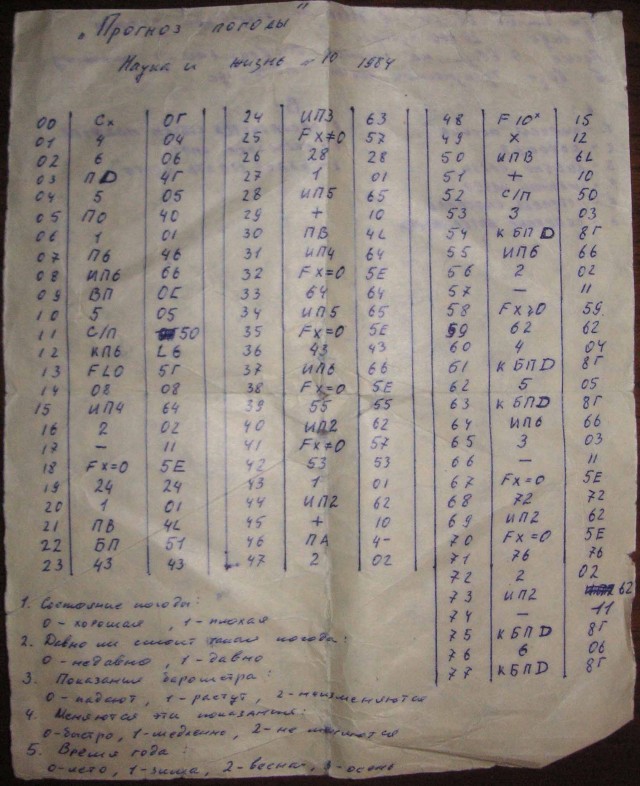 „Прогноз погоды"
Наука и жизнь 10 1984
00 Сх 0Г
01 4 04
02 6 06
03 ПD 4Г
04 5 05
05 П0 40
06 1 01
07 П6 46
08 ИП6 66
09 ВП 0С
10 5 05
11 С/П 50
12 КП6 L6
13 FL0 5Г
14 08 08
15 ИП4 64
16 2 02
17 — 11
18 Fx=0 5E
19 24 24
20 1 01
21 ПВ 4L
22 БП 51
23 43 43
24 ИП3 63
25 Fx≠0 57
26 28 28
27 1 01
28 ИП5 65
29 + 10
30 ПВ 4L
31 ИП4 64
32 Fx=0 5E
33 64 64
34 ИП5 65
35 Fx=0 5E
36 43 43
37 ИП6 66
38 Fx=0 5E
39 55 55
40 ИП2 62
41 Fx≠0 57
42 53 53
43 1 01
44 ИП2 62
45 + 10
46 ПА 4-
47 2 02
48 F10ˣ 15
49 х 12
50 ИПВ 6L
51 + 10
52 С/П 50
53 3 03
54 КБПD 8Г
55 ИП6 66
56 2 02
57 — 11
58 Fx≥0 59
59 62 62
60 4 04
61 КБПD 8Г
62 5 05
63 КБПD 8Г
64 ИП6 66
65 3 03
66 — 11
67 Fx=0 5E
68 72 72
69 ИП2 62
70 Fx=0 5E
71 76 76
72 2 02
73 ИП2 62
74 — 11
75 КБПD 8Г
76 6 06
77 КБПD 8Г
1. Состояние погоды:
0 - хорошая, 1 - плохая
2. Давно ли стоит такая погода:
0 - недавно, 1 - давно
3. Показания барометра:
0 - падают, 1 - растут, 2 - неизменяются
4. Меняются эти показания:
0 - быстро, 1 - медленно, 2 - не меняются
5. Время года:
0 - лето, 1 - зима, 2 - весна, 3 - осень